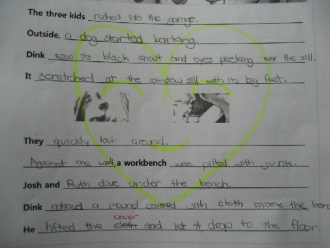 The three kids rushed into the garage.
Outside, a dog started barking.
Dink saw its black snout and eyes peeking over the sill.
It scratched at the window sill with its big feet.
They quickly look around.
Against one wall a workbench was pilled with junk.
Josh and Ruth dive under the bench.
Dink noticed a mound covered with cloth opposite the bench
cover
He lifted the cloth and let it drop to the floor